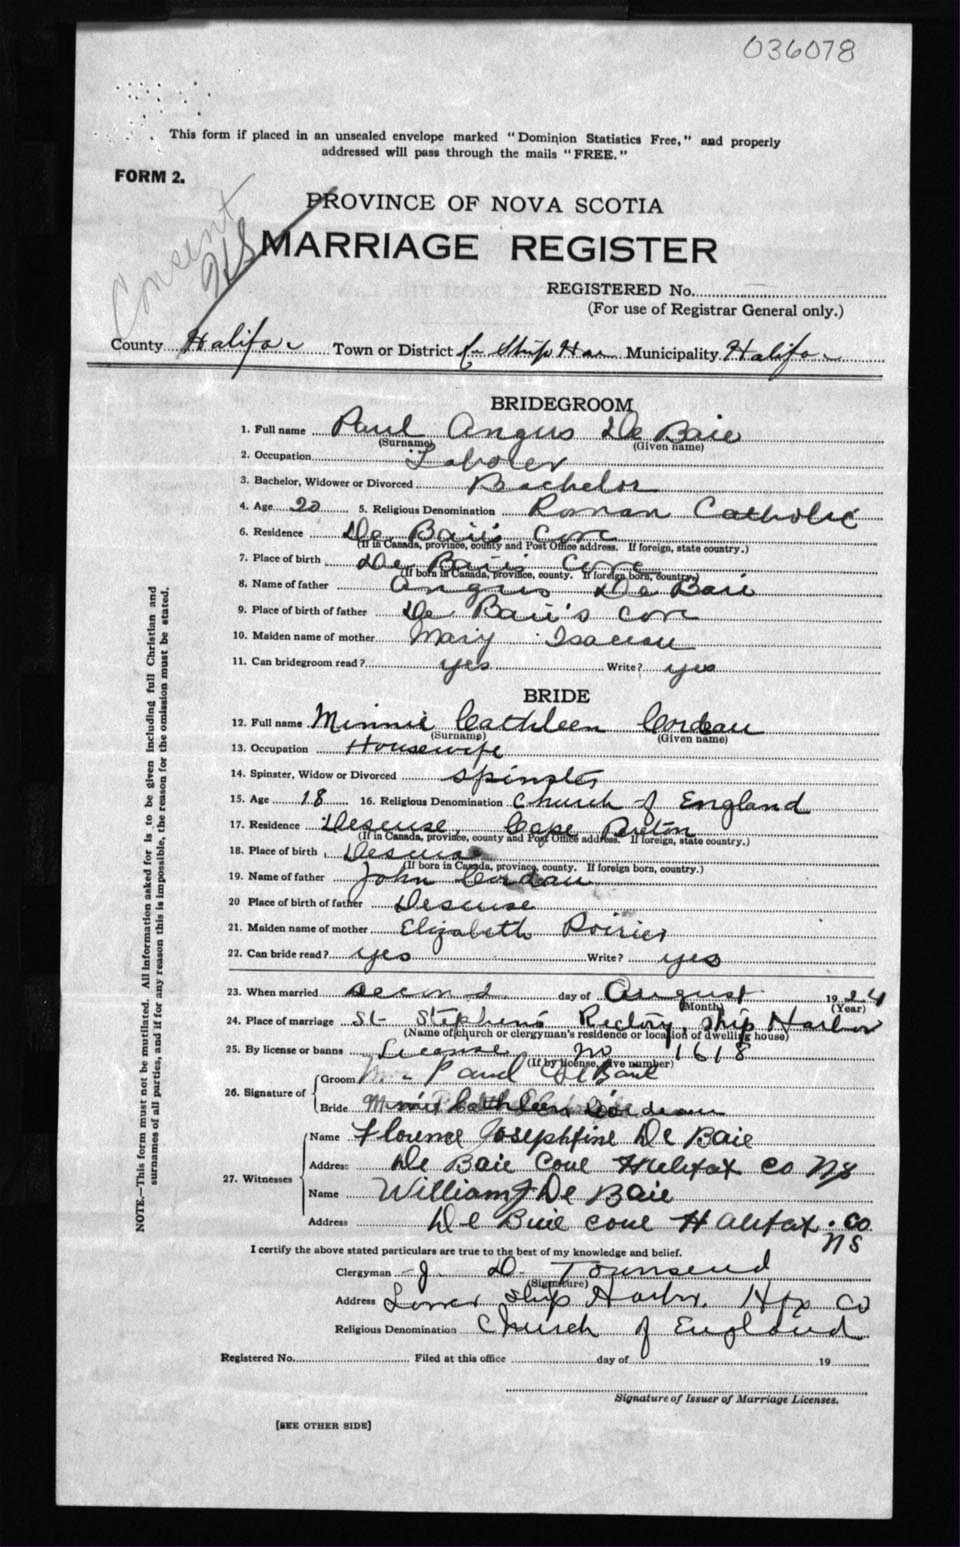 036078
This form if placed in an unsealed envelope marked "Dominion Statistics Free," and properly
addressed will pass through the mails "FREE."
FORM 2.
PROVINCE OF NOVA SCOTIA
Consent
MARRIAGE REGISTER
REGISTERED No.
(For use of Registrar General only.)
County Halifax Town or District Ship Har Municipality Halifax
BRIDEGROOM
1. Full name Paul Angus De Baie
(Surname) (Given name)
2. Occupation Laborer
3. Bachelor, Widower or Divorced Bachelor
4. Age 20 5. Religious Denomination Roman Catholic
6. Residence De Baie's Cove
(If in Canada, province, county and Post Office address. If foreign, state country.)
7. Place of birth De Baie's Cove
(If born in Canada, province, county. If foreign born, country.)
8. Name of father Angus De Baie
9. Place of birth of father De Baie's Cove
10. Maiden name of mother Mary
11. Can bridegroom read? yes Write? yes
BRIDE
12. Full name Minnie Cathleen Cordeau
(Surname) (Given name)
13. Occupation Housewife
14. Spinster, Widow or Divorced Spinster
15. Age 18 16. Religious Denomination Church of England
17. Residence Descuse, Cape Breton
(If in Canada, province, county and Post Office address. If foreign, state country.)
18. Place of birth Descuse
(If born in Canada, province, county. If foreign born, country.)
19. Name of father John Cordeau
20 Place of birth of father Descuse
21. Maiden name of mother Elizabeth Poirier
22. Can bride read? yes Write? yes
23. When married second day of August 1924
(Month) (Year)
24. Place of marriage St Stephen's Rectory, Ship Harbor
(Name of church or clergyman's residence or location of dwelling house)
25. By license or banns License no 1618
(If by license, give number)
26. Signature of
Groom Paul De Baie
Bride Minnie Cathleen Cordeau
27. Witnesses
Name Florence Josephfine De Baie
Address De Baie Cove Halifax Co NS
Name William J De Baie
Address De Baie Cove Halifax. Co.
NS
I certify the above stated particulars are true to the best of my knowledge and belief.
Clergyman J. D. Townsend
(Signature)
Address Lower Ship Harbor, Hfx Co
Religious Denomination Church of England
Registered No. Filed at this office day of 19
Signature of Issuer of Marriage Licenses.
[SEE OTHER SIDE]
NOTE.—This form must not be mutilated. All information asked for is to be given including full Christian and
surnames of all parties, and if for any reason this is impossible, the reason for the omission must be stated.